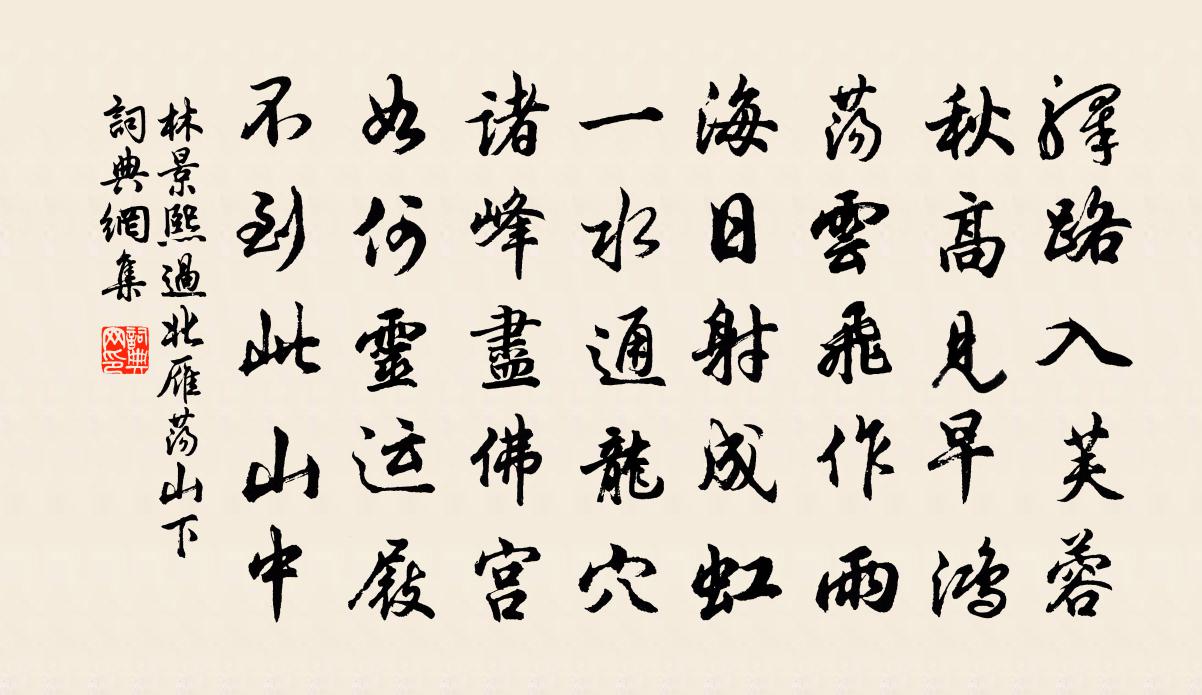 驛路入芙蓉
秋高見早鴻
蕩雲飛作雨
海日射成虹
一水通龍穴
諸峰盡佛宮
如何靈运屐
不到此山中
林景熙過北雁蕩山下
詞典網集
詞典网印